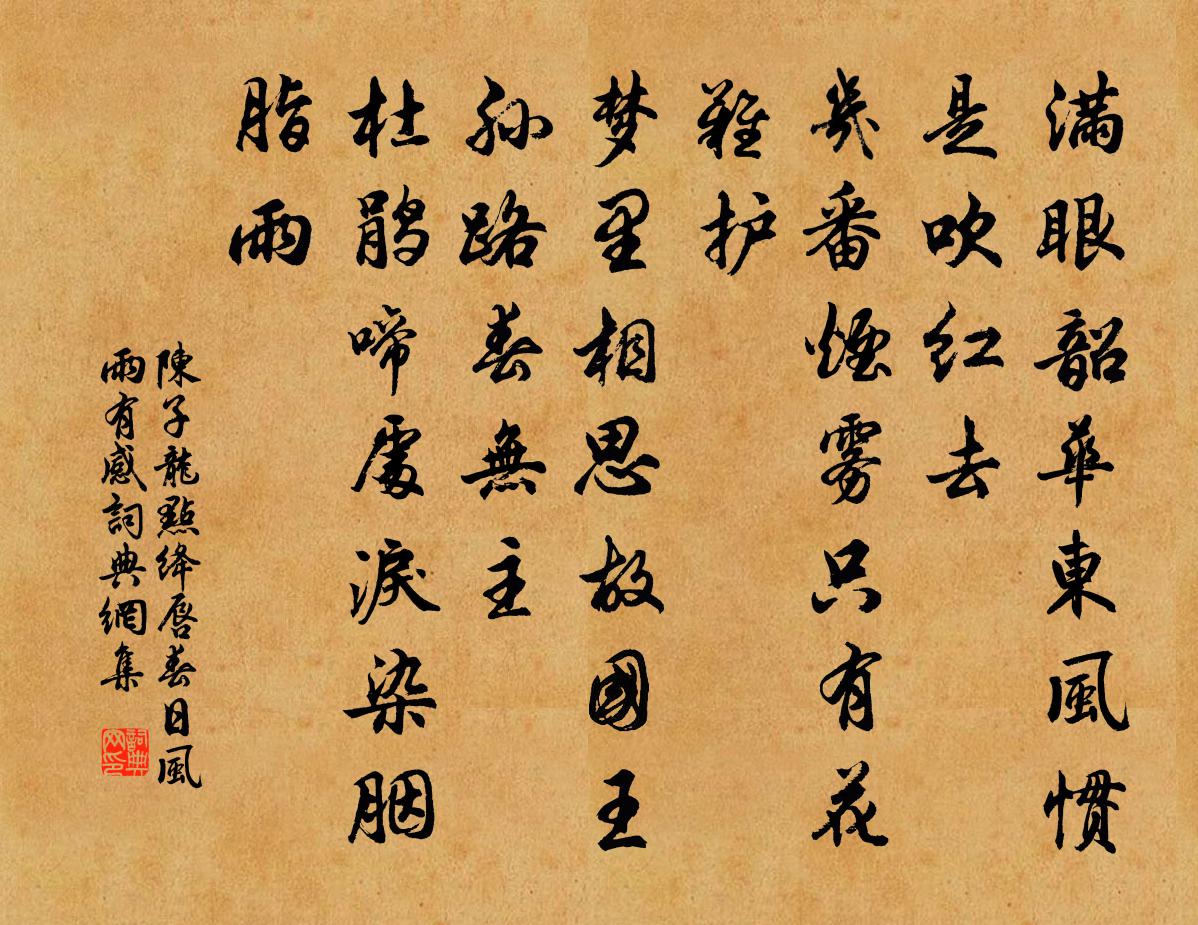 满眼韶華東風慣
是吹红去
幾番煙雾只有花
難护
梦里相思故國王
孙路春無主
杜鹃啼處淚染胭
脂雨
陳子龍點绛唇春日風
雨有感詞典網集
詞典网印